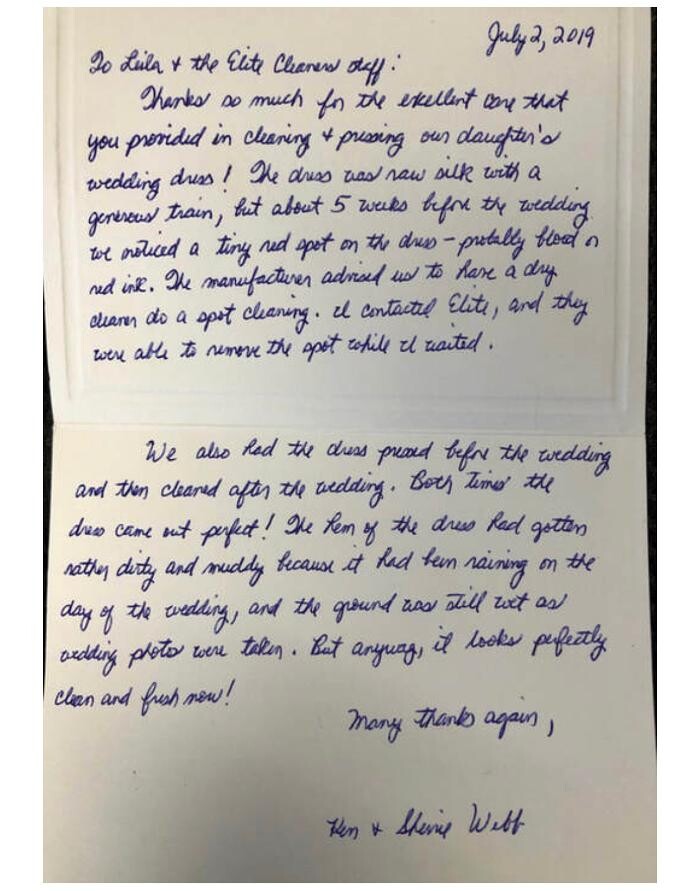 July 2, 2019
To Leila + the Elite Cleaners staff:
Thanks so much for the excellent care that
you provided in cleaning + pressing our daughter's
wedding dress! The dress was raw silk with a
generous train, but about 5 weeks before the wedding
we noticed a tiny red spot on the dress - probally blood or
red ink. The manufacturer advised us to have a dry
cleaner do a spot cleaning. I contacted Elite, and they
were able to remove the spot while I waited.
We also had the dress pressed before the wedding
and then cleaned after the wedding. Both times the
dress came out perfect! The hem of the dress had gotten
rather dirty and muddy because it had been raining on the
day of the wedding, and the ground was still wet as
wedding photos were taken. But anyway, it looks perfectly
clean and fresh now!
Many thanks again,
Ken + Sherrie Webb